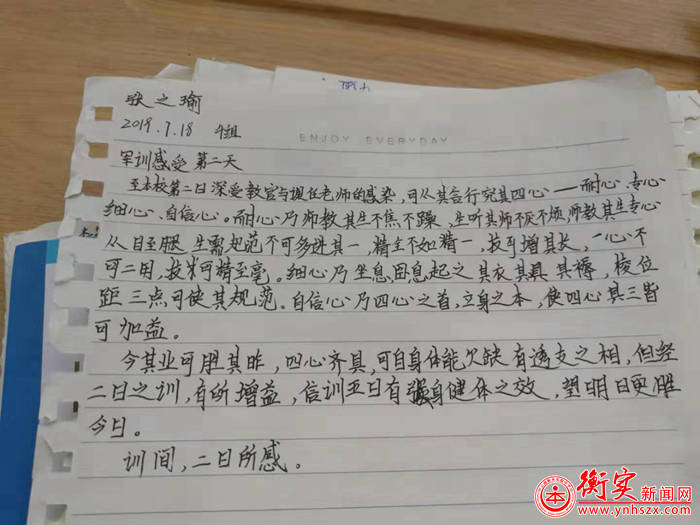 之瑜
2019.7.18 4组
ENJOY EVERYDAY
军训感受 第二天
至本校第二日深受教官与现任老师的感染,可从其言行究其四心——耐心、专心
细心、自信心。耐心乃师教其生不焦不躁,生听其师不厌不烦,师教其生专心
从目至腿 生需规范不可多进其一,精生不如精一,技可增其长,一心不
可二用,技术可精至毫。细心乃生息因息起之其衣其真其褥,棱位
距三点可使其规范。自信心乃四心之首,立身之本,使四心其三皆
可加益。
今其业可胜其昨,四心齐具,可自身体能欠缺有透支之相,但经
二日之训,有所增益,信训五日有强身健体之效,望明日更胜
今日。
训间,二日所感。
衡实新闻网
www.ynhszx.com